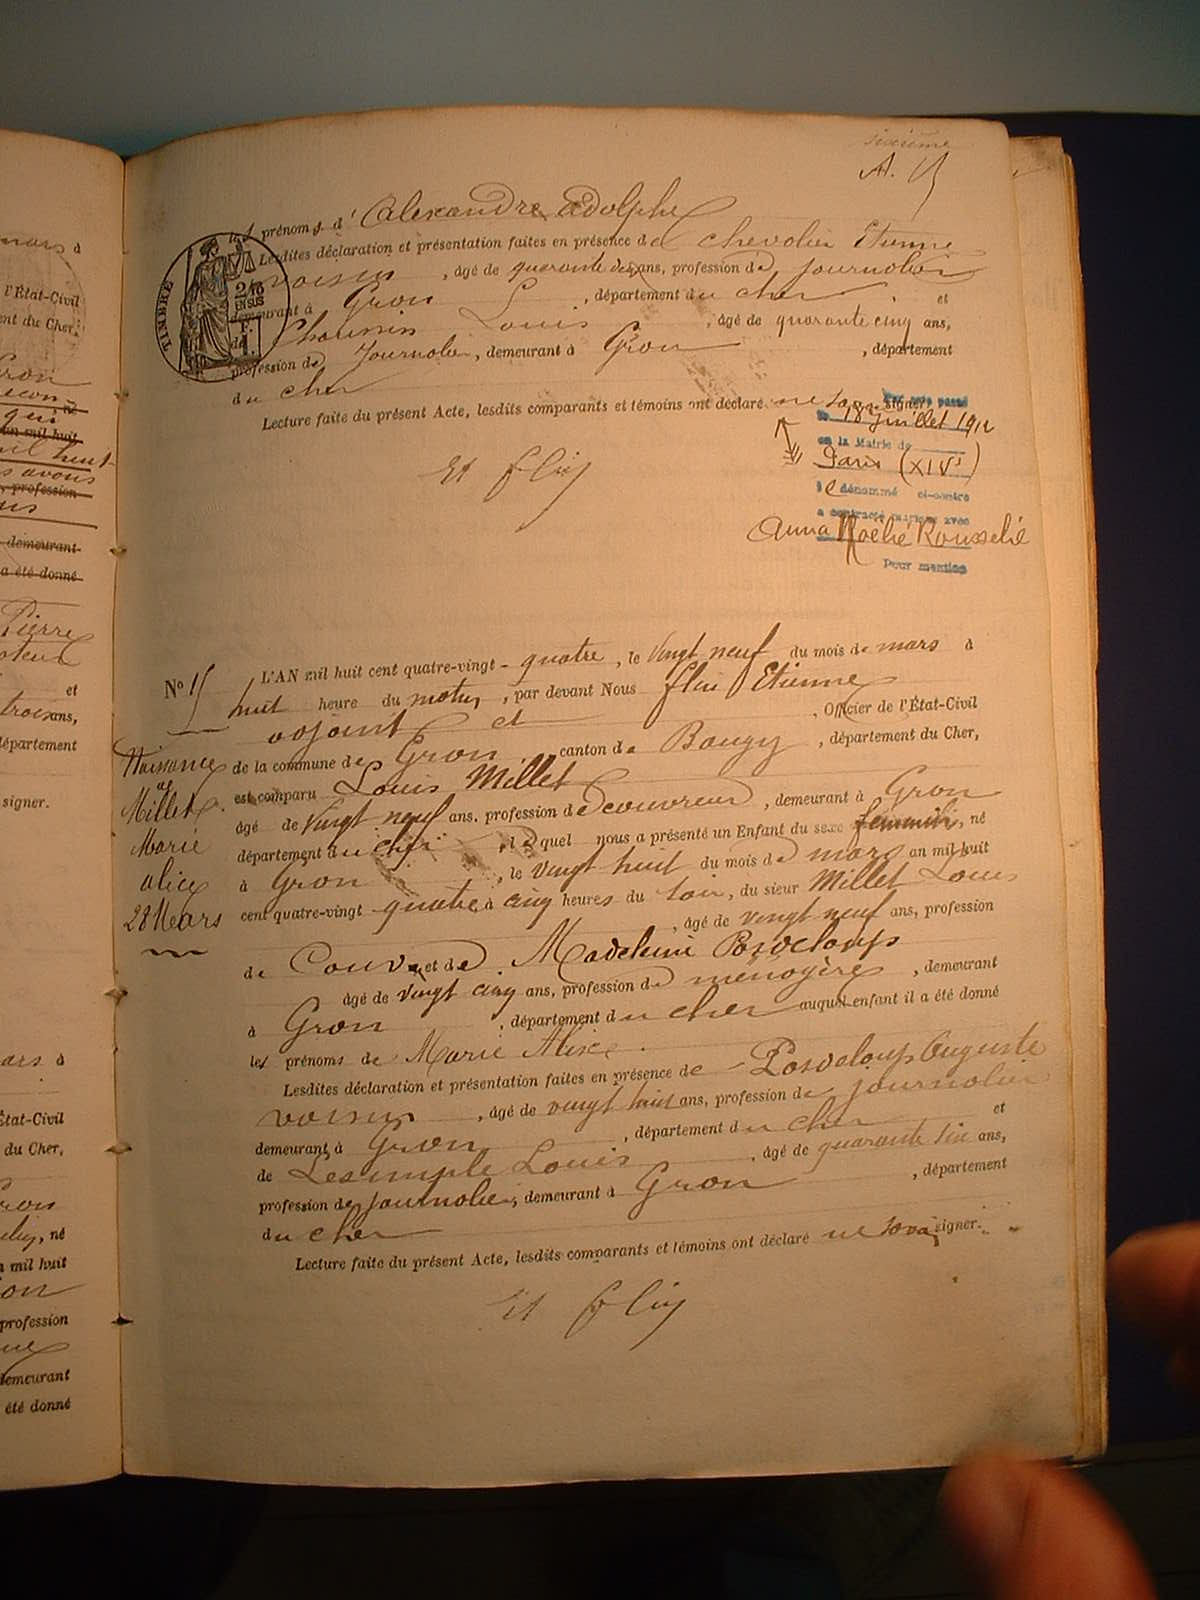 sixième
les prénoms d' Alexandre Adolphe
Lesdites déclaration et présentation faites en présence de chevalier Etienne
voisin, âgé de quarante deux ans, profession de journalier
demeurant à Gron, département du cher et
de Louis, âgé de quarante cinq ans,
profession de journalier, demeurant à Gron, département
du cher
Lecture faite du présent Acte, lesdits comparants et témoins ont déclaré ne savoir signer.
Et fluy
18 juillet 1912
en la Mairie de
Paris (XIVe)
le dénommé ci-contre
a contracté mariage avec
Anna
Pour mention
TIMBRE
No 15
L'AN mil huit cent quatre-vingt-quatre, le vingt neuf du mois de mars à
huit heure du matin, par devant Nous Etienne
adjoint, Officier de l'État-Civil
de la commune de Gron canton de Baugy, département du Cher,
est comparu Louis Millet
âgé de vingt neuf ans, profession de couvreur, demeurant à Gron
département du cher, lequel nous a présenté un Enfant du sexe feminin, né
à Gron, le vingt huit du mois de mars an mil huit
cent quatre-vingt quatre à cinq heures du soir, du sieur Millet Louis
, âgé de vingt neuf ans, profession
de Couvr et de Madeleine Pasdeloup
âgé de vingt cinq ans, profession de ménagère, demeurant
à Gron, département du cher auquel enfant il a été donné
les prénoms de Marie Alice
Lesdites déclaration et présentation faites en présence de Pasdeloup Auguste
voisin, âgé de vingt huit ans, profession de journalier
demeurant à Gron, département du cher et
de Lesimple Louis, âgé de quarante six ans,
profession de journalier, demeurant à Gron, département
du cher
Lecture faite du présent Acte, lesdits comparants et témoins ont déclaré ne savoir signer.
Et fluy
Naissance
de
Millet
Marie
alice
28 Mars